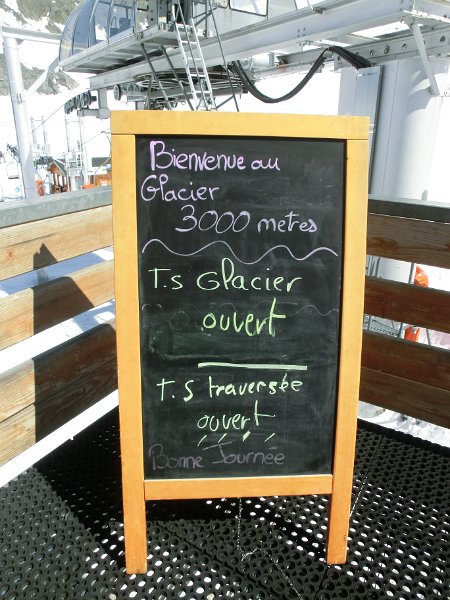 Bienvenue au
Glacier
3000 metres
T.s Glacier
ouvert
T.S traversée
ouvert
Bonne Journée